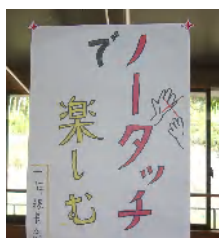 ノータッチ
で
楽しむ